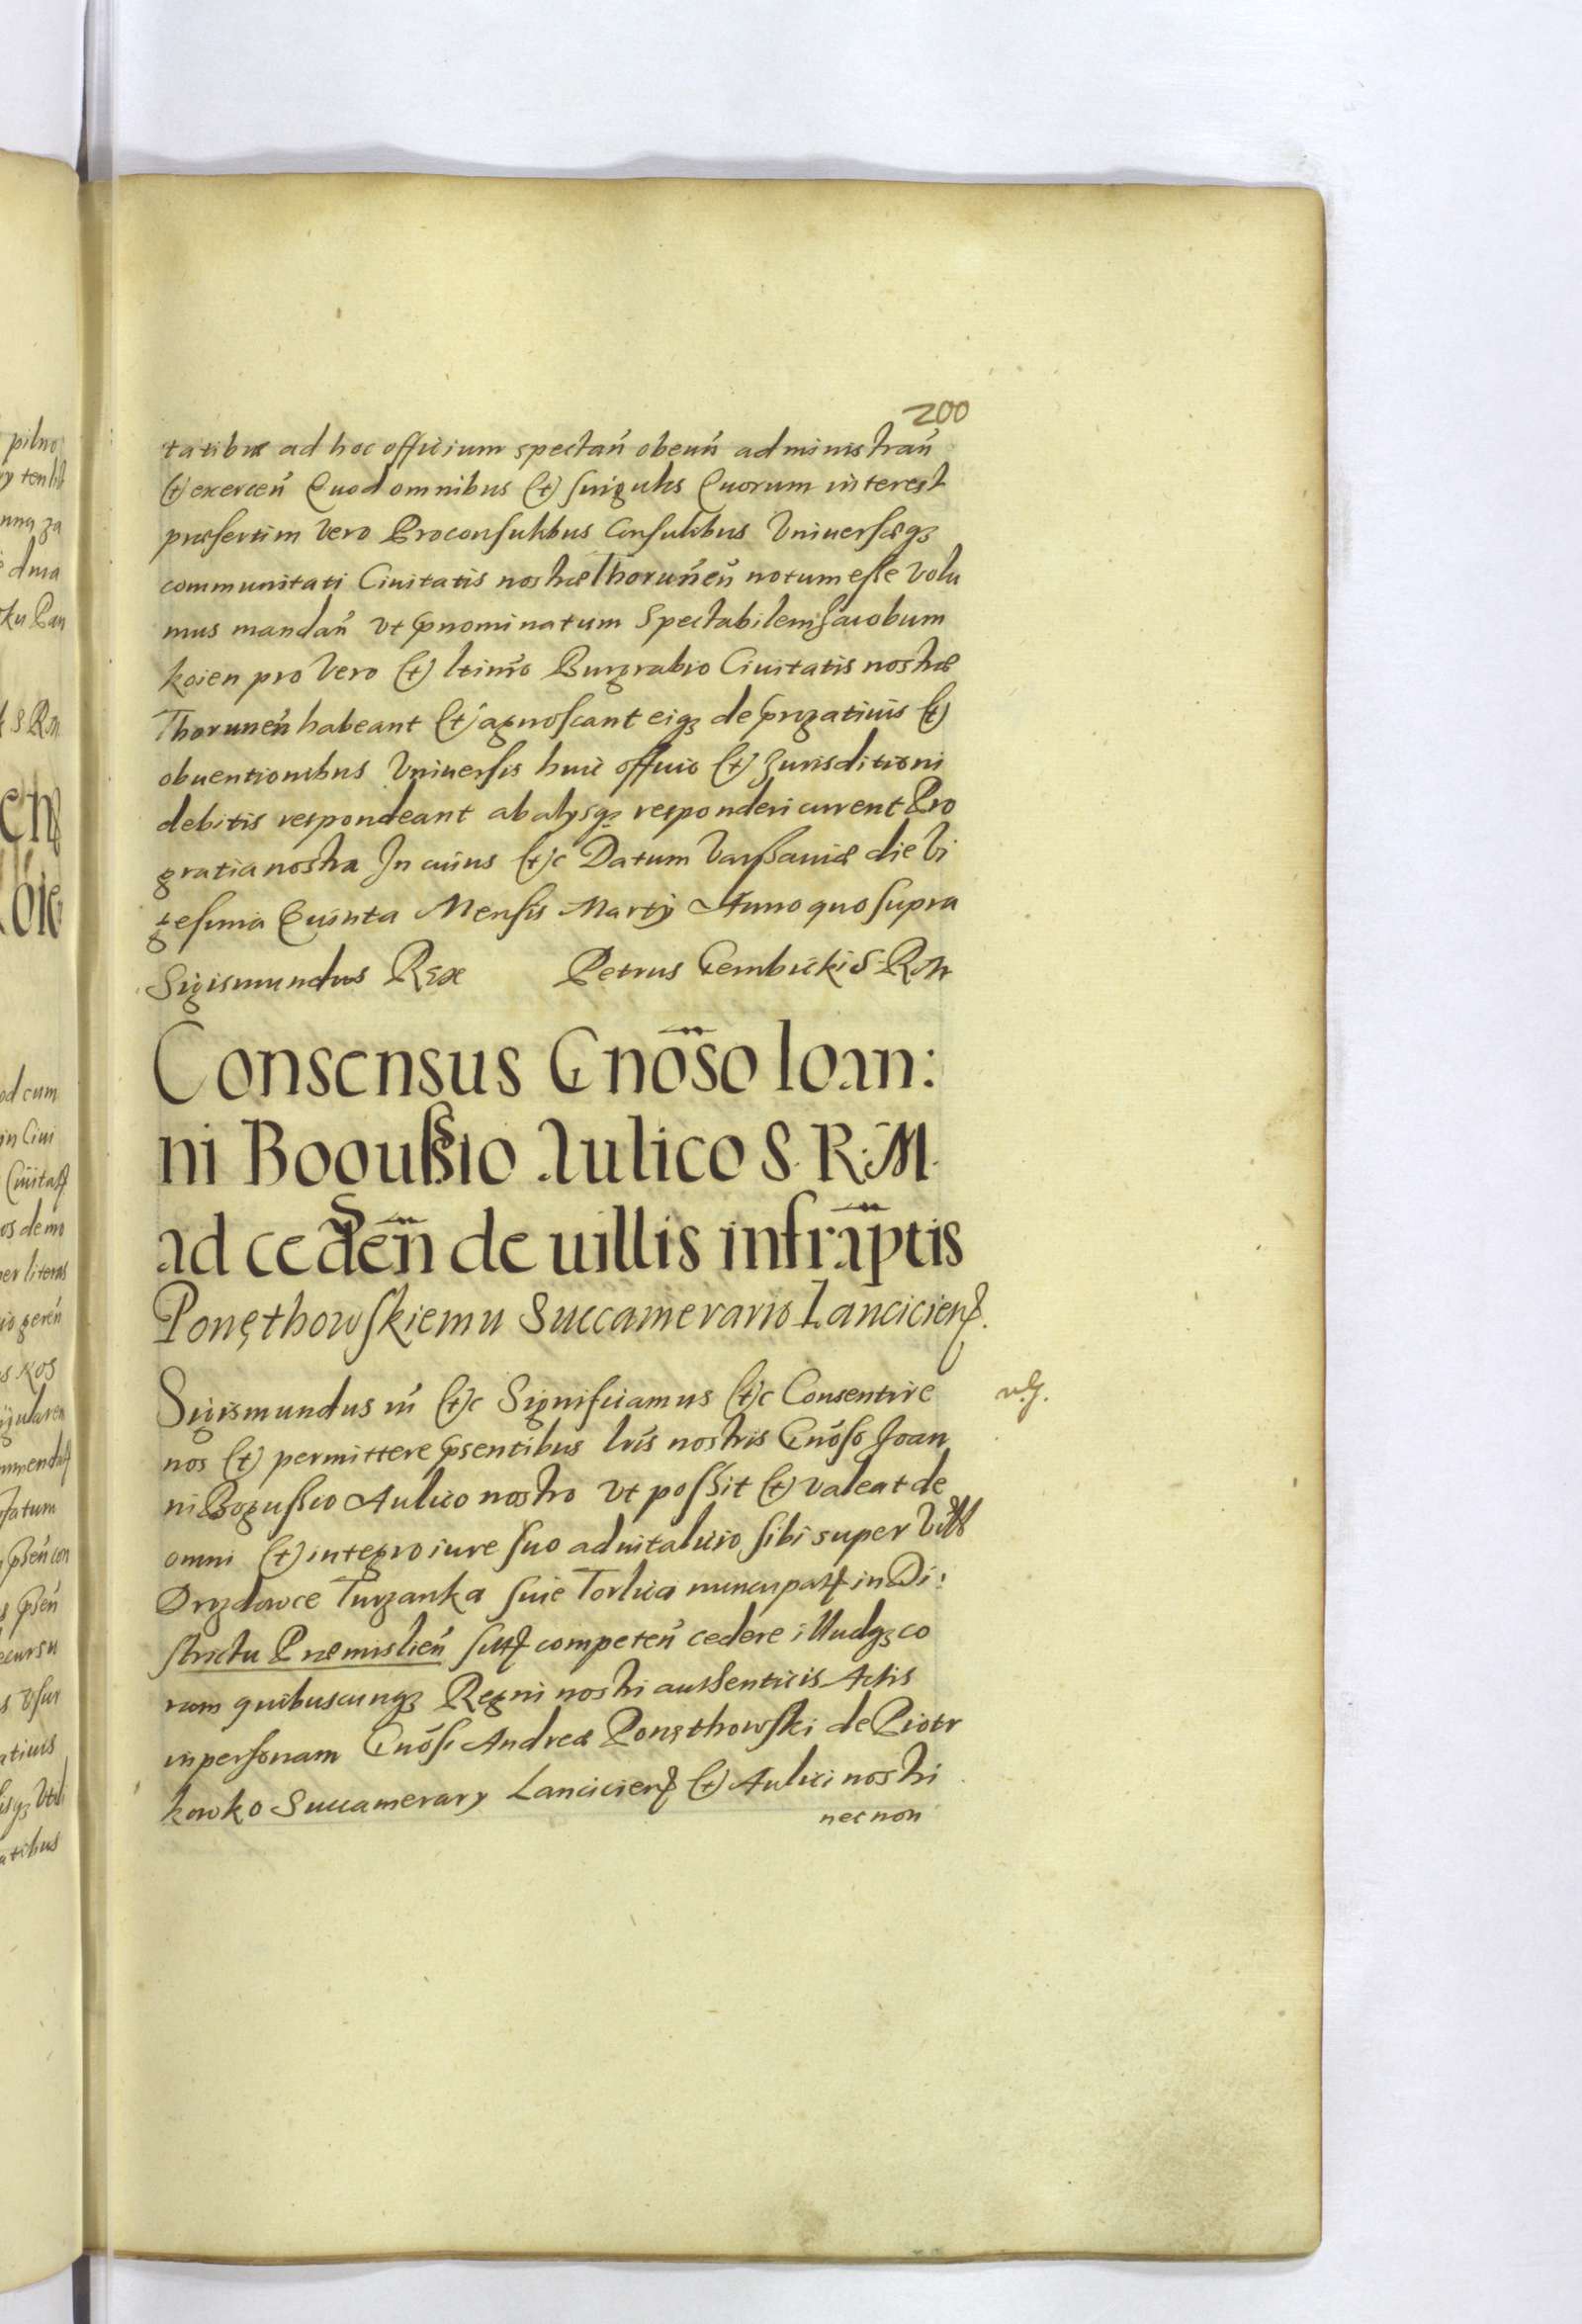 200
tatibus ad hoc officium spectan̄ obeun̄ administran̄
(et) exercen̄ Quod omnibus (et) singulis Quorum interest
præsertim vero Proconsulibus Consulibus Vniuersæq3
communitati Ciuitatis nostræ Thorunen̄ notum esse volu
mus mandan̄ vt p̄nominatum Spectabilem Jacobum
koien pro vero (et) ltimo Burgrabio Ciuitatis nostræ
Thorunen̄ habeant (et) agnoscant eiq3 de p̄rogatiuis (et)
obuentionibus Vniuersis huic officio (et) Jurisditioni
debitis respondeant ab alysq3 responderi curent Pro
gratia nostra In cuius (et)c Datum Varssauiæ die Vi
gesima Quinta Mensis Martij Anno quo supra
Sigismundus Rex Petrus Gembicki S. R M
Consensus Gnōso Ioan:
ni Bogussio Aulico S. R. M.
ad ceden̄ de uillis infrap̄tis
Ponęthowskiemu Succamerario Lancicien.
Sigismundus iii (et)c Significamus (et)c Consentire
nos (et) permittere p̄sentibus lris nostris Gnōso Joan
ni Bogussio Aulico nostro vt possit (et) valeat de
omni (et) integro iure suo aduitalicio sibi super Vill
Drozdowce Turzanka siue Torlica nuncupat in Di:
strictu Præmislien̄ sitt competen̄ cedere illudq3 co
ram quibuscunq3 Regni nostri authenticis Actis
in personam Gnōsi Andreæ Ponęthowski de Piotr
kowko Succamerary Lancicien (et) Aulici nostri
nec non